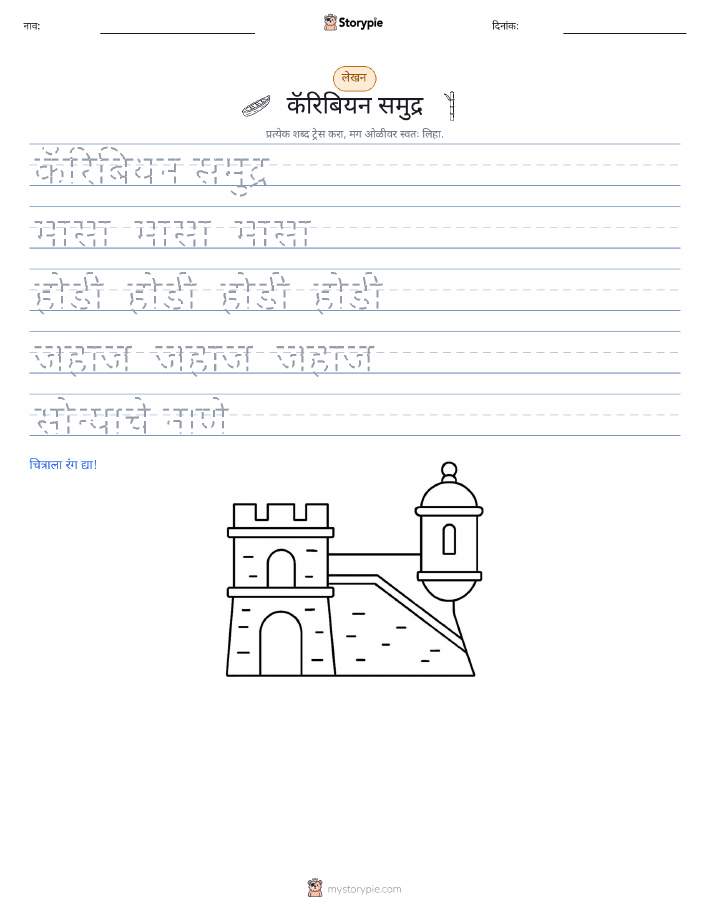 नाव:
Storypie
दिनांक:
लेखन
कॅरिबियन समुद्र
प्रत्येक शब्द ट्रेस करा, मग ओळीवर स्वतः लिहा.
कॅरिबियन समुद्र
मासा मासा मासा
होडी होडी होडी होडी
जहाज जहाज जहाज
सोन्याचे नाणे
चित्राला रंग द्या!
mystorypie.com